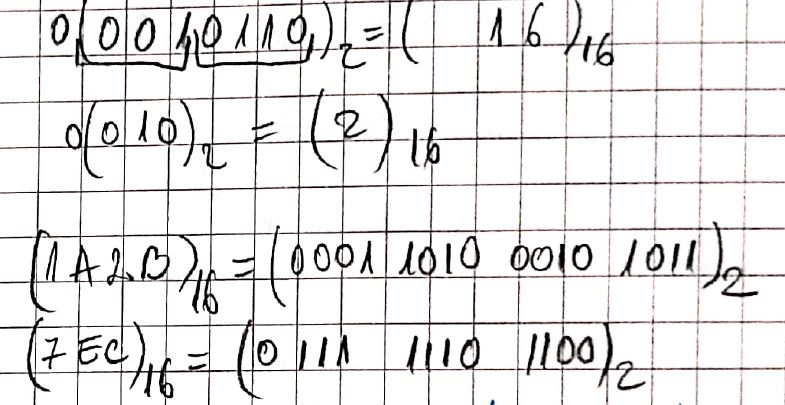 0(001 0110)₂ = ( 16)₁₆
0(010)₂ = (2)₁₆
(1A2B)₁₆ = (0001 1010 0010 1011)₂
(7EC)₁₆ = (0111 1110 1100)₂